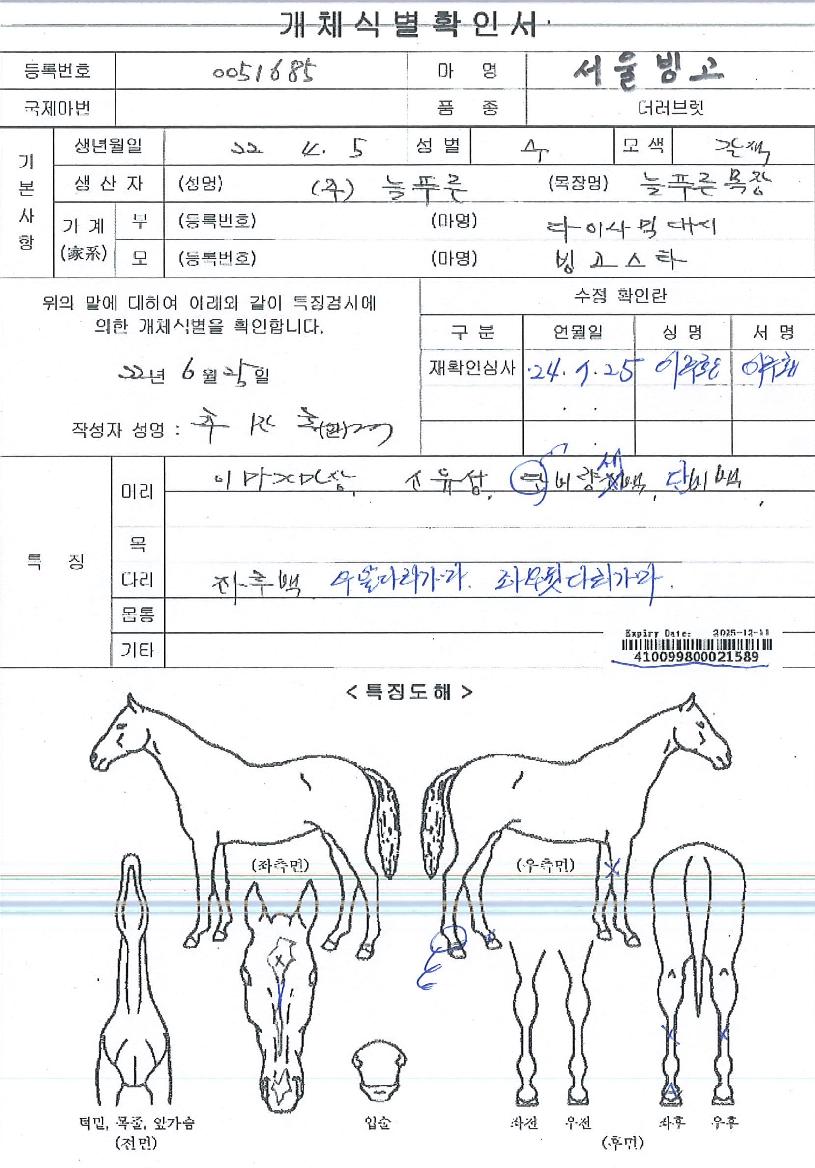 개체식별확인서
등록번호 0051685 마 명 서울빙고
국제마번 품 종 더러브렛
기본사항
생년월일 22 4. 5 성별 수 모색 갈색
생산자 (성명) (주) 늘푸른 (목장명) 늘푸른목장
기계(家系) 부 (등록번호) (마명) 다이나믹대시
모 (등록번호) (마명) 빙고스타
위의 말에 대하여 아래와 같이 특징검사에
의한 개체식별을 확인합니다.
22년 6월 25일
작성자 성명 :
수정 확인란
구분 연월일 성명 서명
재확인심사 '24. 1. 25
특 징
머리
목
다리 좌후백 우앞다리가마. 좌우뒷다리가마.
몸통
기타
Expiry Date: 2025-12-11
410099800021589
< 특징도해 >
(좌측면) (우측면)
턱밑, 목줄, 앞가슴
(전면)
입술
좌전 우전 좌후 우후
(후면)